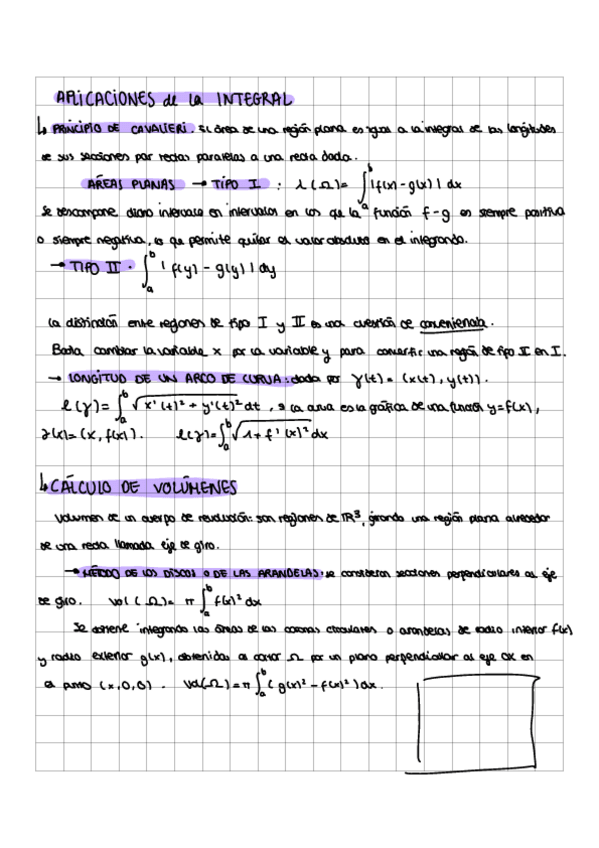 APLICACIONES de la INTEGRAL
↳ PRINCIPIO DE CAVALIERI. El área de una región plana es igual a la integral de las longitudes
de sus secciones por rectas paralelas a una recta dada.
ÁREAS PLANAS → TIPO I : λ(Ω) = ∫_a^b |f(x) - g(x)| dx
Se descompone dicho intervalo en intervalos en los que la función f - g es siempre positiva
o siempre negativa, lo que permite quitar el valor absoluto en el integrando.
→ TIPO II. ∫_a^b |f(y) - g(y)| dy
La distinción entre regiones de tipo I y II es una cuestión de conveniencia.
Basta cambiar la variable x por la variable y para convertir una región de tipo II en I.
→ LONGITUD DE UN ARCO DE CURVA: dada por γ(t) = (x(t), y(t)).
l(γ) = ∫_a^b √(x'(t)² + y'(t)²) dt, si la curva es la gráfica de una función y = f(x),
γ(x) = (x, f(x)). l(γ) = ∫_a^b √(1 + f'(x)²) dx
↳ CÁLCULO DE VOLÚMENES
Volumen de un cuerpo de revolución: son regiones de ℝ³, girando una región plana alrededor
de una recta llamada eje de giro.
→ MÉTODO DE LOS DISCOS O DE LAS ARANDELAS: se consideran secciones perpendiculares al eje
de giro. Vol(Ω) = π ∫_a^b f(x)² dx
Se obtiene integrando las áreas de las coronas circulares o arandelas de radio interior f(x)
y radio exterior g(x), obtenidas al cortar Ω por un plano perpendicular al eje OX en
el punto (x,0,0). Vol(Ω) = π ∫_a^b (g(x)² - f(x)²) dx.